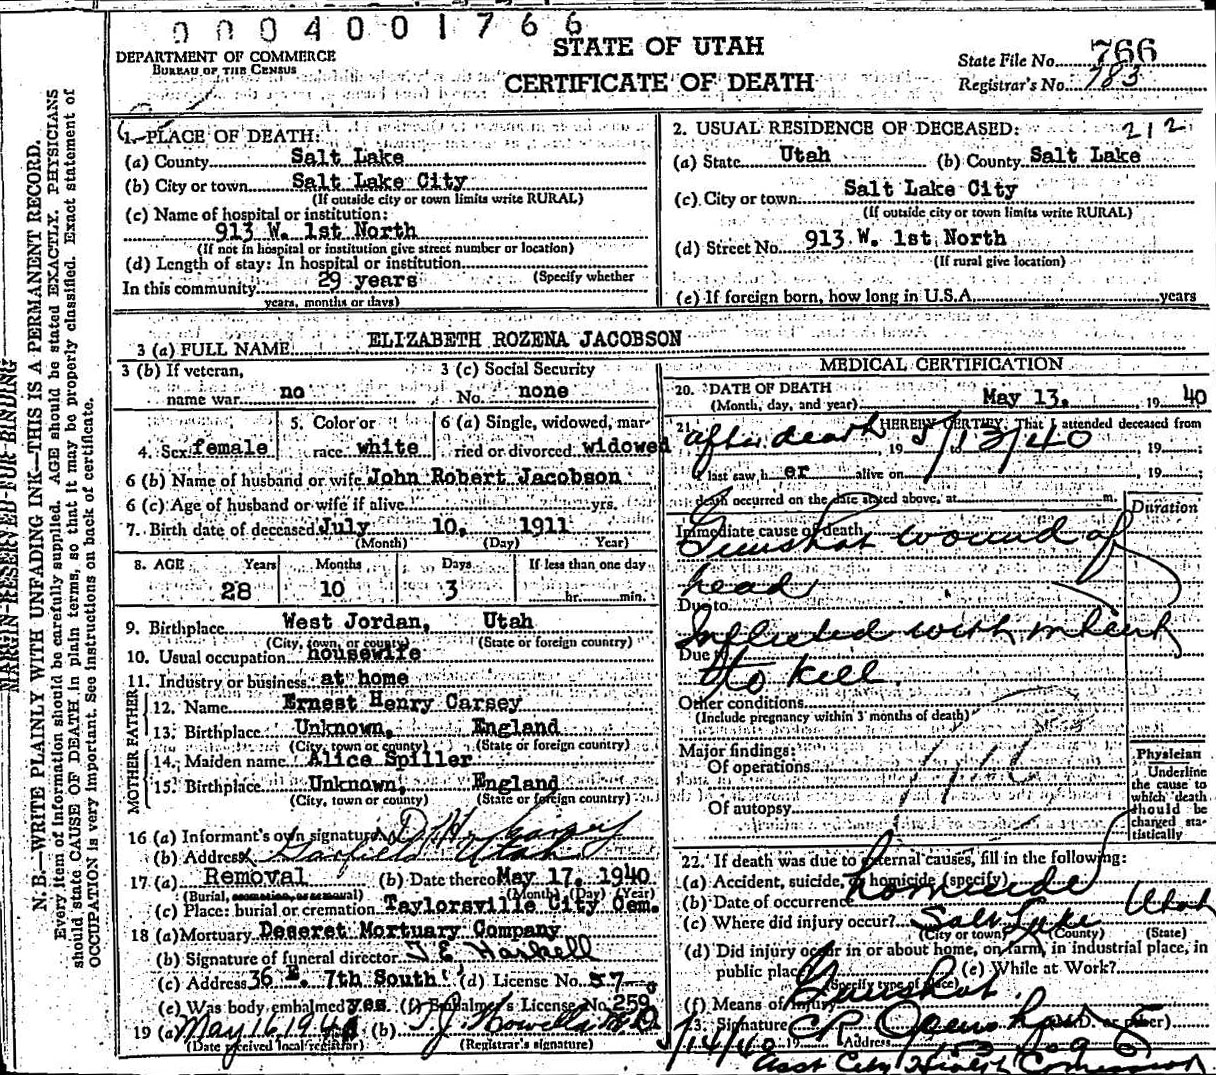 0004001766
DEPARTMENT OF COMMERCE
BUREAU OF THE CENSUS
STATE OF UTAH
CERTIFICATE OF DEATH
State File No. 766
Registrar's No. 783
MARGIN RESERVED FOR BINDING
N. B.—WRITE PLAINLY WITH UNFADING INK—THIS IS A PERMANENT RECORD.
Every item of information should be carefully supplied. AGE should be stated EXACTLY. PHYSICIANS
should state CAUSE OF DEATH in plain terms, so that it may be properly classified. Exact statement of
OCCUPATION is very important. See instructions on back of certificate.
1. PLACE OF DEATH:
(a) County Salt Lake
(b) City or town Salt Lake City
(If outside city or town limits write RURAL)
(c) Name of hospital or institution:
913 W. 1st North
(If not in hospital or institution give street number or location)
(d) Length of stay: In hospital or institution
(Specify whether
In this community 29 years
years, months or days)
2. USUAL RESIDENCE OF DECEASED: 212
(a) State Utah (b) County Salt Lake
(c) City or town Salt Lake City
(If outside city or town limits write RURAL)
(d) Street No. 913 W. 1st North
(If rural give location)
(e) If foreign born, how long in U.S.A. years
3 (a) FULL NAME ELIZABETH ROZENA JACOBSON
3 (b) If veteran, name war no
3 (c) Social Security No. none
4. Sex female
5. Color or race white
6 (a) Single, widowed, married or divorced widowed
6 (b) Name of husband or wife John Robert Jacobson
6 (c) Age of husband or wife if alive yrs.
7. Birth date of deceased July 10, 1911
(Month) (Day) Year)
8. AGE Years Months Days If less than one day
28 10 3 hr. min.
9. Birthplace West Jordan, Utah
(City, town, or county) (State or foreign country)
10. Usual occupation housewife
11. Industry or business at home
FATHER
12. Name Ernest Henry Carsey
13. Birthplace Unknown, England
(City, town or county) (State or foreign country)
MOTHER
14. Maiden name Alice Spiller
15. Birthplace Unknown, England
(City, town or county) (State or foreign country)
16 (a) Informant's own signature D. H. Carsey
(b) Address Garfield Utah
17 (a) Removal (b) Date thereof May 17, 1940
(Burial, cremation, or removal) (Month) (Day) (Year)
(c) Place: burial or cremation Taylorsville City Cem.
18 (a) Mortuary Deseret Mortuary Company
(b) Signature of funeral director
(c) Address 36 E. 7th South (d) License No. 57
(e) Was body embalmed yes (f) Embalmer's License No. 259
19 (a) May 16 1940 (b)
(Date received local registrar) (Registrar's signature)
MEDICAL CERTIFICATION
20. DATE OF DEATH
(Month, day, and year) May 13, 19 40
21. I HEREBY CERTIFY, That I attended deceased from
after death 5/13/40 , 19 to , 19 ;
I last saw h er alive on , 19 ;
death occurred on the date stated above, at m.
Duration
Immediate cause of death
Gunshot wound of
head
Due to
Inflicted with intent
Due to
to kill
Other conditions
(Include pregnancy within 3 months of death)
Major findings:
Of operations
Of autopsy
Physician
Underline
the cause to
which death
should be
charged sta-
tistically
22. If death was due to external causes, fill in the following:
(a) Accident, suicide, or homicide (specify) homicide
(b) Date of occurrence
(c) Where did injury occur? Salt Lake Utah
(City or town) (County) (State)
(d) Did injury occur in or about home, on farm, in industrial place, in
public place? (e) While at Work?
(Specify type of place)
(f) Means of Injury Gunshot
23. Signature (M.D. or other)
5/14/40 19 Address
Asst City Health Commissioner